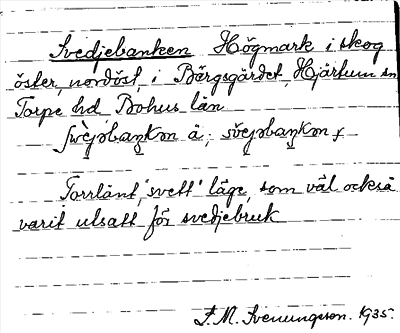 Svedjebanken Högmark i skog
öster, nordöst, i Bärgsgärdet, Hjärtum sn
Torpe hd, Bohus län
Torrlänt, 'svett' läge, som väl också
varit utsatt för svedjebruk
F.M. Svenungsson. 1935.